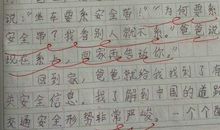 说：“坐车要系安全带！”“为何要系
安全带？我看别人就不系。”爸爸说
现在系上，回家再告诉你。”
回到家，爸爸就给我找到了有
关安全信息。我了解到中国的道路
交通安全形势非常严峻。一个个